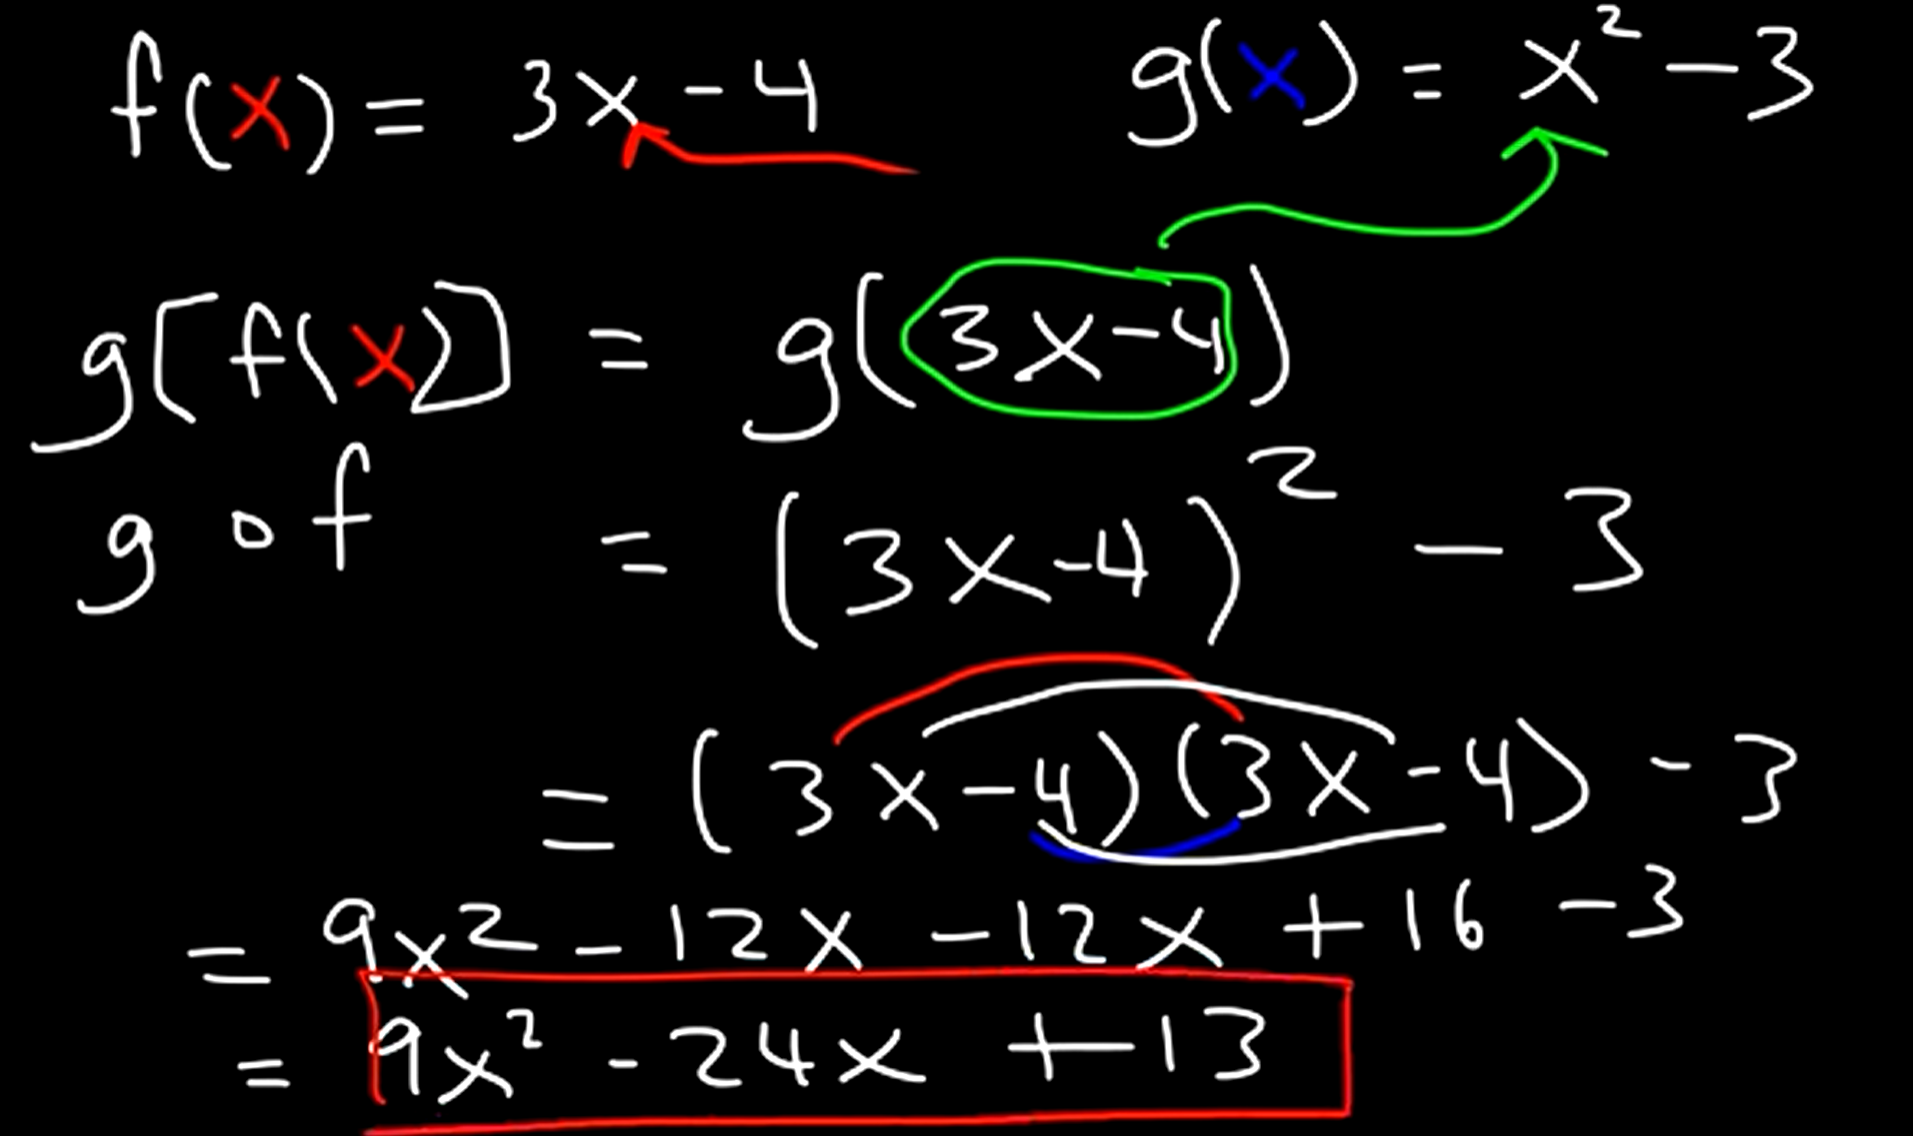 f(x) = 3x - 4 g(x) = x² - 3
g[f(x)] = g(3x-4)
g o f = (3x-4)² - 3
= (3x-4)(3x-4) - 3
= 9x² - 12x - 12x + 16 - 3
= 9x² - 24x + 13